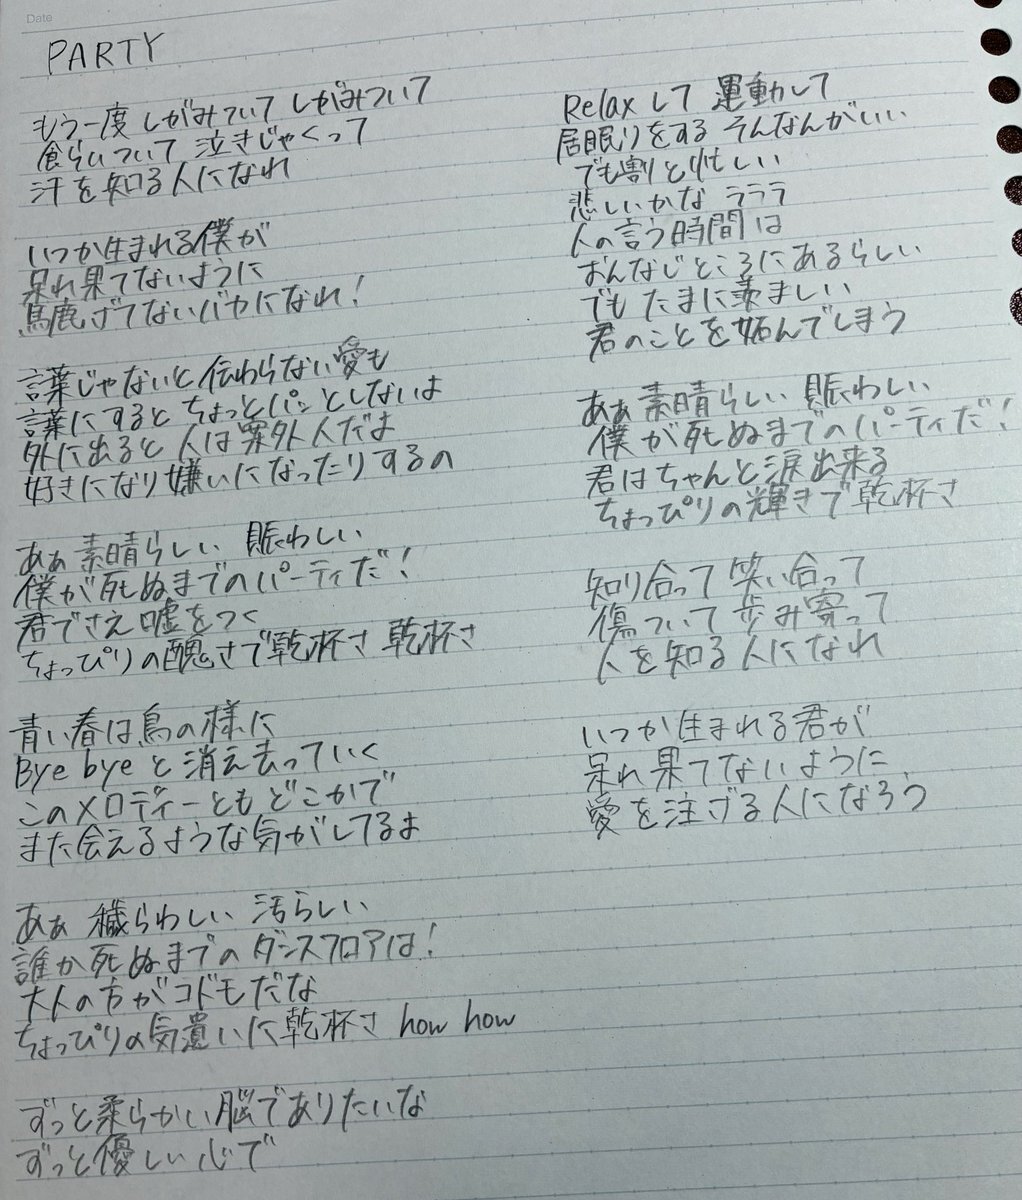 Date
PARTY
もう一度 しがみついて しがみついて
食らいついて 泣きじゃくって
汗を知る人になれ
いつか生まれる僕が
呆れ果てないように
馬鹿げてないバカになれ!
言葉じゃないと伝わらない愛も
言葉にするとちょっとパッとしないは
外に出ると人は案外人だよ
好きになり嫌いになったりするの
あぁ 素晴らしい 賑わしい
僕が死ぬまでのパーティだ!
君でさえ嘘をつく
ちょっぴりの醜さで乾杯さ 乾杯さ
青い春は鳥の様に
Bye byeと消え去っていく
このメロディーともどこかで
また会えるような気がしてるよ
あぁ 穢らわしい 汚らしい
誰か死ぬまでのダンスフロアは!
大人の方がコドモだな
ちょっぴりの気遣いに乾杯さ how how
ずっと柔らかい脳でありたいな
ずっと優しい心で
Relaxして 運動して
居眠りをする そんなんがいい
でも割と忙しい
悲しいかな ラララ
人の言う時間は
おんなじところにあるらしい
でも たまに羨ましい
君のことを妬んでしまう
あぁ 素晴らしい 賑わしい
僕が死ぬまでのパーティだ!
君はちゃんと涙出来る
ちょっぴりの輝きで乾杯さ
知り合って 笑い合って
傷ついて 歩み寄って
人を知る人になれ
いつか生まれる君が
呆れ果てないように
愛を注げる人になろう